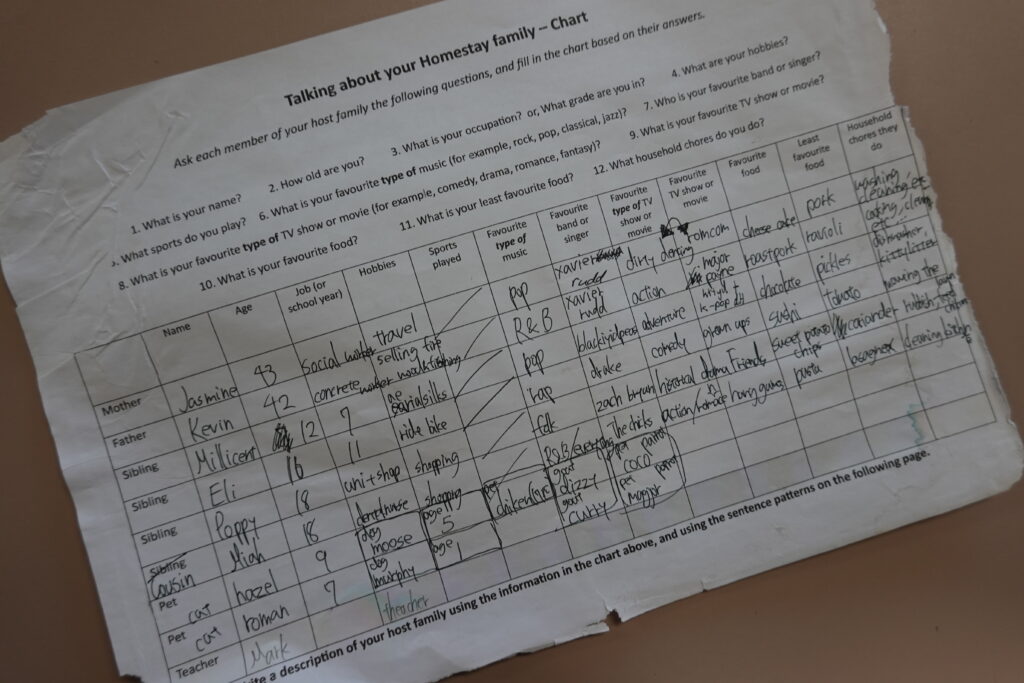 Talking about your Homestay family – Chart
Ask each member of your host family the following questions, and fill in the chart based on their answers.
1. What is your name? 2. How old are you? 3. What is your occupation? or, What grade are you in? 4. What are your hobbies?
What sports do you play? 6. What is your favourite type of music (for example, rock, pop, classical, jazz)? 7. Who is your favourite band or singer?
8. What is your favourite type of TV show or movie (for example, comedy, drama, romance, fantasy)? 9. What is your favourite TV show or movie?
10. What is your favourite food? 11. What is your least favourite food? 12. What household chores do you do?
Name Age Job (or school year) Hobbies Sports played Favourite type of music Favourite band or singer Favourite type of TV show or movie Favourite TV show or movie Favourite food Least favourite food Household chores they do
Mother Jasmine 43 social worker travel pop xavier rudd dirty dancing romcom cheese cake pork washing cleaning etc
Father Kevin 42 concrete worker selling fire wood fishing R&B xavier rudd action major payne roastpork ravioli
Sibling Millicent 12 7 pop adventure chocolate pickles dishwasher, kitty litter
Sibling Eli 16 11 ride bike rap drake comedy grown ups sushi tomato mowing the
Sibling Poppy 18 uni + shop shopping folk zach bryan historical drama Friends sweet potato chips coriander rubbish
Sibling Cousin Miah 18 shopping R&B/everything The chicks action/ hungry games pasta cleaning
Pet cat hazel 9 dog moose age 5 pet goat dizzy pet parrot coco
Pet cat roman 7 dog murphy age 1 goat curry pet parrot major
Teacher Mark theacher
te a description of your host family using the information in the chart above, and using the sentence patterns on the following page.